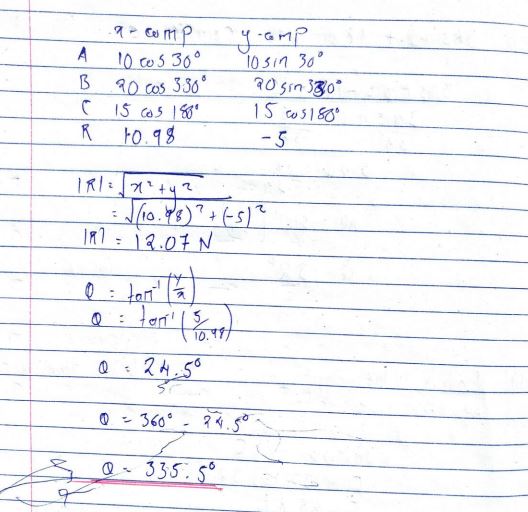 x-comp y-comp
A 10 cos 30° 10 sin 30°
B 20 cos 330° 20 sin 330°
C 15 cos 180° 15 cos 180°
R 10.98 -5
|R| = √x² + y²
= √(10.98)² + (-5)²
|R| = 12.07 N
θ = tan⁻¹ (y/x)
θ = tan⁻¹ (5/10.98)
θ = 24.5°
θ = 360° - 24.5°
θ = 335.5°